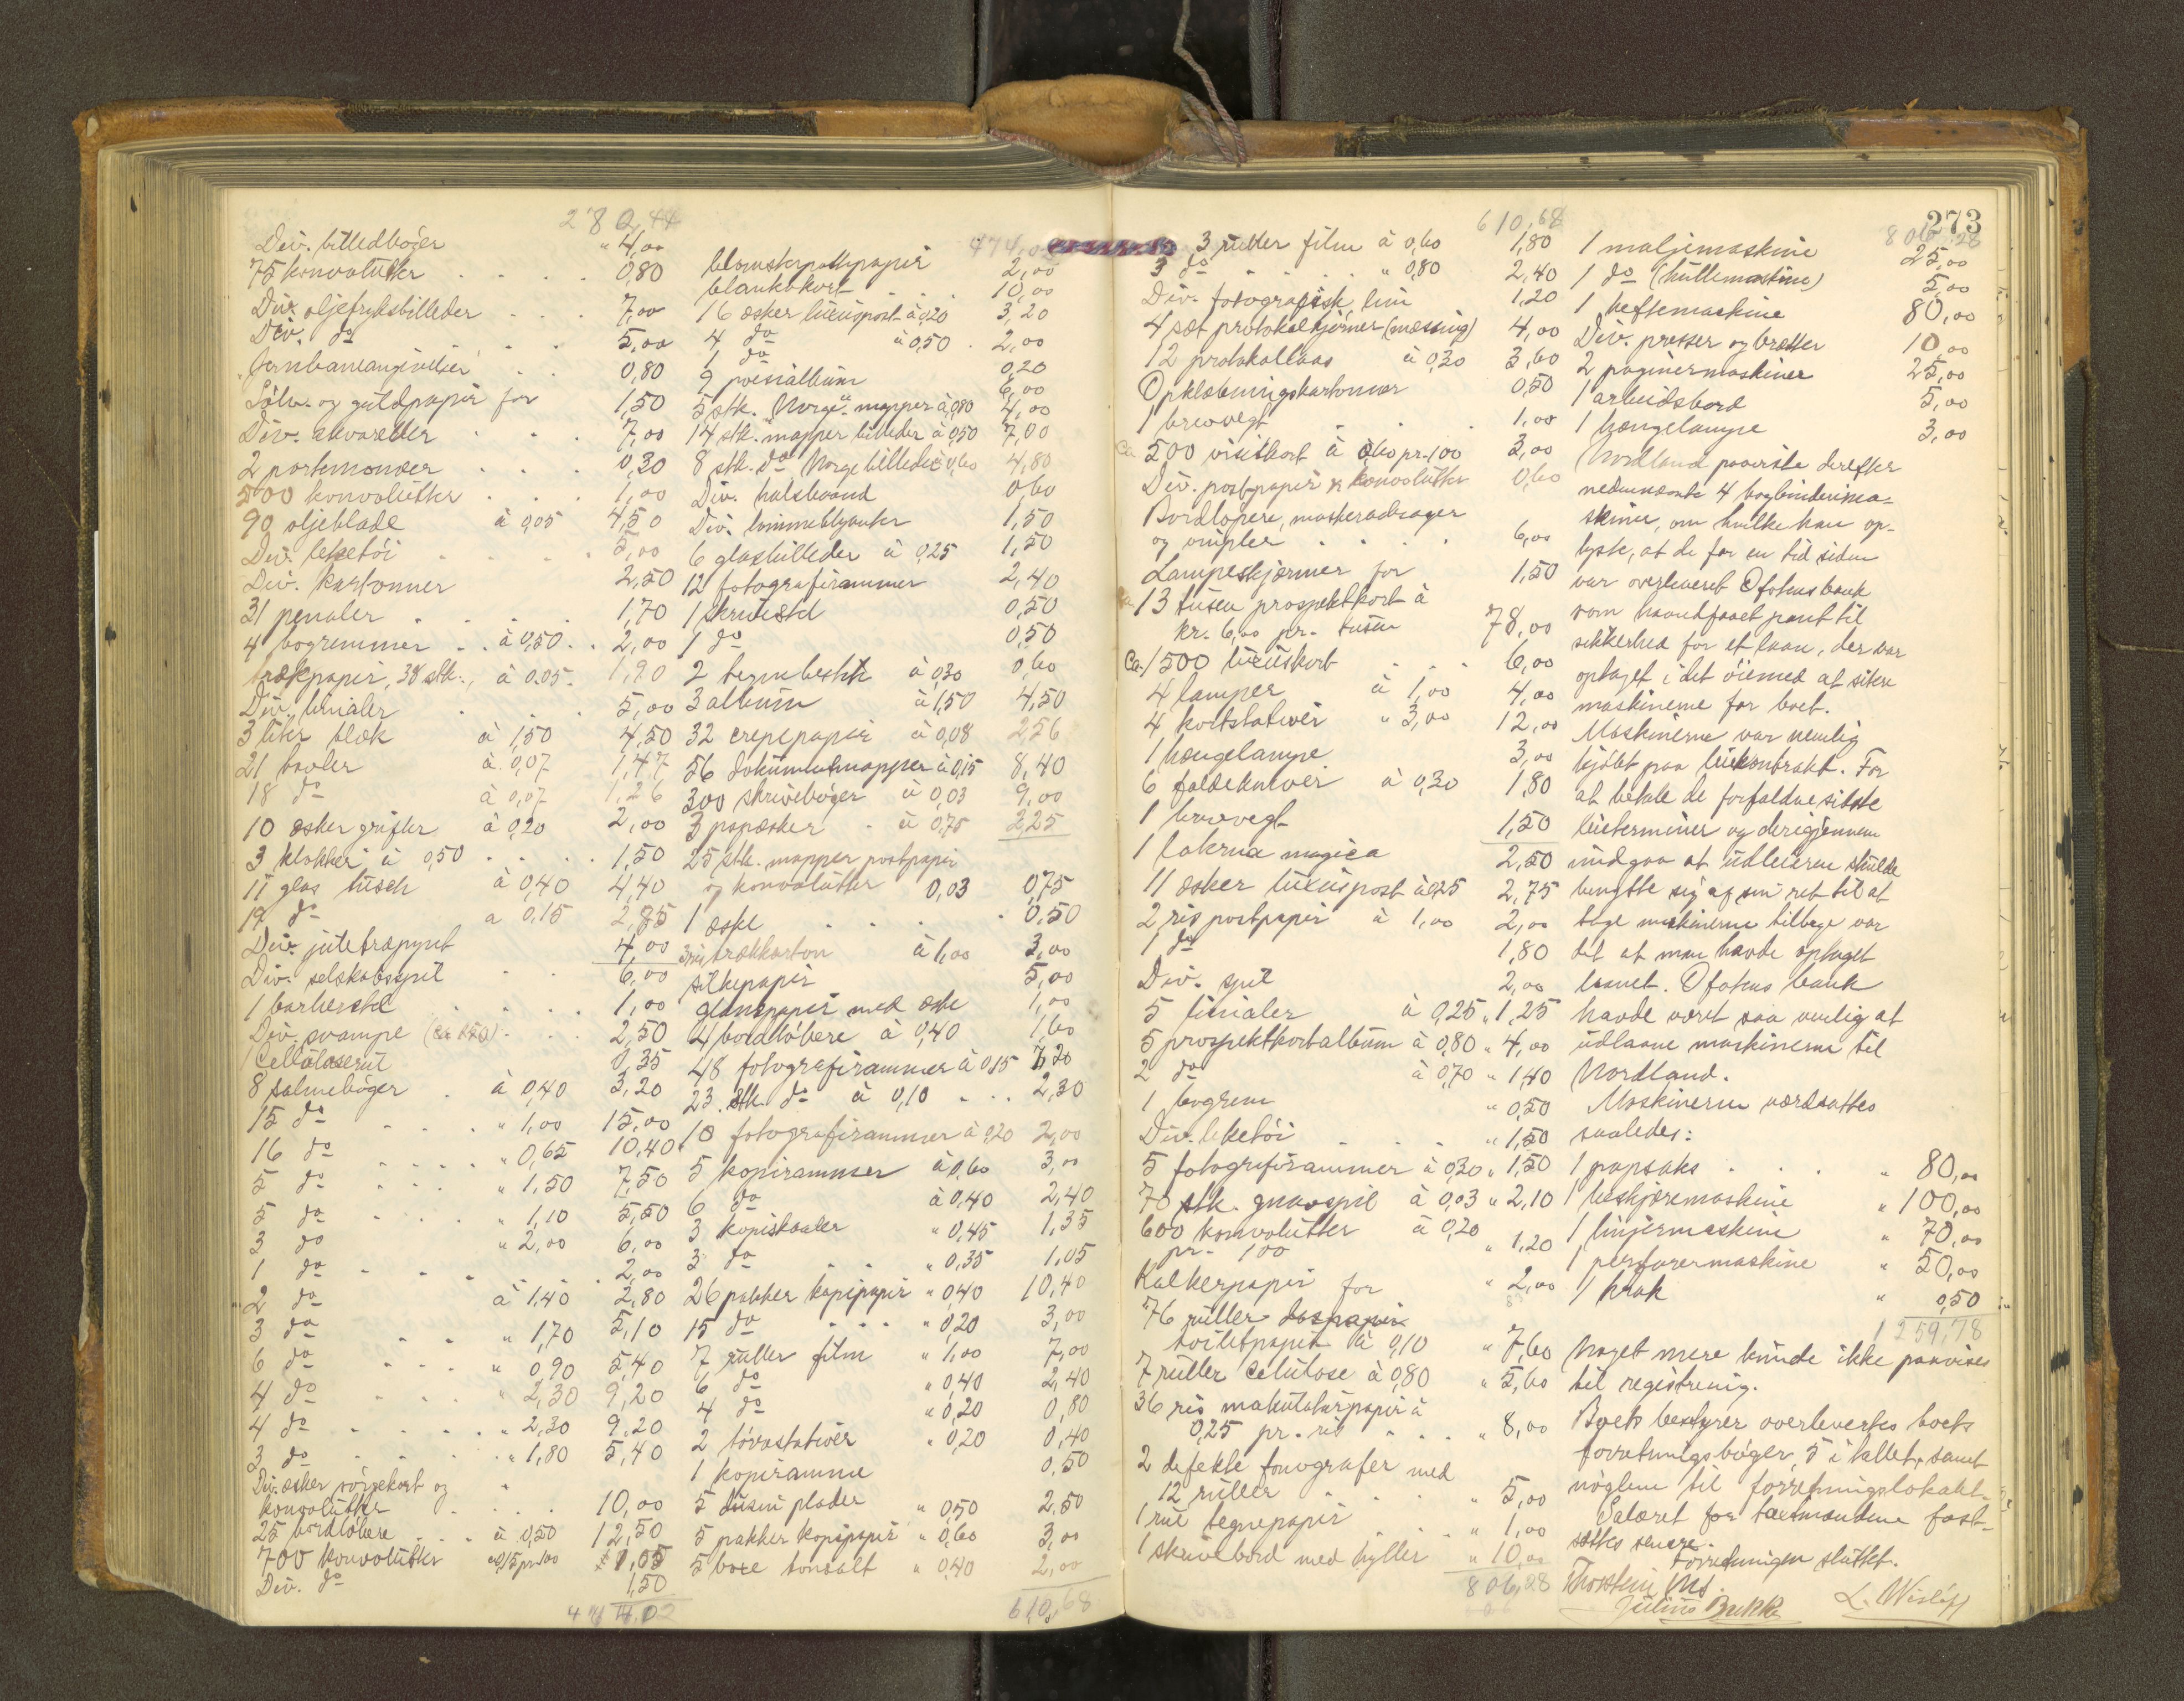 280,44
Div. billedbøger " 4,00
75 konvolutter . . . . 0,80
Div. oljetryksbilleder . . . 7,00
Div. do . . 5,00
Jernbaneangivelser . . 0,80
Sølv- og guldpapir for 1,50
Div. akvareller . . . 7,00
2 portemonæer . . . 0,30
500 konvolutter . . . 1,00
90 oljeblade à 0,05 4,50
Div. leketøi . . . . 5,00
Div. kartonner 2,50
31 penaler . . . . 1,70
4 bogremmer . . à 0,50 . . 2,00
trækpapir, 38 stk., à 0.05. 1,90
Div. linialer . . . 5,00
3 liter blæk à 1,50 4,50
21 tavler à 0,07 1,47
18 do à 0,07 1,26
10 æsker grifler à 0,20 2,00
3 klokker à 0,50 . . . . 1,50
11 glas tusch à 0,40 4,40
19 do a 0,15 2,85
Div. juletræpynt 4,00
Div. selskabsspil . . 6,00
1 barherstol . . . . 1,00
Div. svampe . . . 2,50
1 Celluloserul 0,35
8 salmebøger . à 0,40 3,20
15 do . . . . " 1,00 15,00
16 do . . . . " 0,65 10,40
5 do . . . " 1,50 7,50
5 do . . . . " 1,10 5,50
3 do " 2,00 6,00
1 do . . . . . . 2,00
2 do à 1,40 2,80
3 do . . " 1,70 5,10
6 do . . . " 0,90 5,40
4 do . . . " 2,30 9,20
4 do . . . . " 2,30 9,20
3 do . . . . " 1,80 5,40
Div. æsker sørgekort og
konvolutter . . . 10,00
25 bordløbere . . . à 0,50 12,50
700 konvolutter a 0,15 pr. 100 1,05
Div. do 1,50
474,02
474,02
blomsterpottepapir 2,00
blankokort . . . 10,00
16 æsker luxuspost à 0,20 3,20
4 do à 0,50 . 2,00
1 do 0,20
9 poesialbum 6,00
5 stk. "Norge" mapper à 0,80 4,00
14 stk. mapper billeder à 0,50 7,00
8 stk. do Norge billeder à 0,60 4,80
Div. halsbaand 0,60
Div. lommeblyanter 1,50
6 glasbilleder à 0,25 1,50
12 fotografirammer 2,40
1 skrivestel 0,50
1 do 0,50
2 tegnebestik à 0,30 0,60
3 album à 1,50 4,50
32 crepepapir à 0,08 2,56
56 dokumentmapper à 0,15 8,40
300 skrivebøger à 0,03 9,00
3 papæsker . à 0,75 2,25
25 stk. mapper postpapir
og konvolutter 0,03 0,75
1 æske . . . . 0,50
3 trækkarton à 1,00 3,00
silkepapir 5,00
glanspapir med æske 1,00
4 bordløbere à 0,40 1,60
48 fotografirammer à 0,15 7,20
23 stk. do à 0,10 . . . 2,30
10 fotografirammer à 0,20 2,00
5 kopirammer à 0,60 3,00
6 do à 0,40 2,40
3 kopiskaaler " 0,45 1,35
3 do . . " 0,35 1,05
26 pakker kopipapir " 0,40 10,40
15 do . . . " 0,20 3,00
7 ruller film " 1,00 7,00
6 do " 0,40 2,40
4 do " 0,20 0,80
2 tørrestativer " 0,20 0,40
1 kopiramme 0,50
5 dusin plader " 0,50 2,50
5 pakker kopipapir " 0,60 3,00
5 boxe tonsalt " 0,40 2,00
610,68
610,68
3 ruller film à 0,60 1,80
3 do . . . . " 0,80 2,40
Div. fotografisk lim 1,20
4 sæt protokolhjørner (messing) 4,00
12 protokollaas à 0,30 3,60
Opklæbningskartonner 0,50
1 brevvegt . . . . 1,00
ca 500 visitkort à 0,60 pr. 100 3,00
Div. postpapir & konvolutter 0,60
Bordløpere, maskeradesager
og vimpler . . . . 6,00
Lampeskjærmer for 1,50
13 tusen prospektkort à
kr. 6,00 pr. tusen 78,00
ca 1500 luxuskort . . . 6,00
4 lamper à 1,00 4,00
4 kortstativer " 3,00 12,00
1 hængelampe 3,00
6 foldekniver à 0,30 1,80
1 brevvegt 1,50
1 laterna magica 2,50
11 æsker luxuspost à 0,25 2,75
2 ris postpapir à 1,00 2,00
1 do 1,80
Div. spil 2,00
5 linialer à 0,25 " 1,25
5 prospektkortalbum à 0,80 " 4,00
2 do à 0,70 " 1,40
1 bogrem " 0,50
Div. leketøi . . . . " 1,50
5 fotografirammer à 0,30 " 1,50
70 stk. gnavspil à 0,03 " 2,10
600 konvolutter à 0,20
pr. 100 " 1,20
Kalkerpapir for " 2,00
76 ruller dospapir
toiletpapir à 0,10 " 7,60
7 ruller celulose à 0,80 " 5,60
36 ris makulaturpapir à
0,25 pr. ris . . . " 8,00
2 defekte fonografer med
12 ruller . . . . " 5,00
1 rul tegnepapir . . . " 1,00
1 skrivebord med hyller " 10,00
806,28
273
806,28
1 maljemaskine 25,00
1 do (hullemaskine) 5,00
1 heftemaskine 80,00
Div. presser og bretter 10,00
2 paginermaskiner 25,00
1 arbeidsbord 5,00
1 hængelampe 3,00
Nordland paaviste derefter
nedennævnte 4 bogbinderima-
skiner, om hvilke han op-
lyste, at de for en tid siden
var overleveret Ofotens bank
som haandfaaet pant til
sikkerhed for et laan, der var
optaget i det øiemed at sikre
maskinerne for boet.
Maskinerne var nemlig
kjøbt paa leiekontrakt. For
at betale de forfaldne, sidste
leieterminer og derigjennem
undgaa at udleieren skulde
benytte sig af sin ret til at
tage maskinerne tilbage var
det at man havde optaget
laanet. Ofotens bank
havde været saa venlig at
udlaane maskinerne til
Nordland.
Maskinerne værdsattes
saaledes:
1 papsaks . . . " 80,00
1 beskjæremaskine " 100,00
1 linjermaskine " 70,00
1 perforermaskine " 50,00
1 krak " 0,50
1259,78
Noget mere kunde ikke paavises
til registrering.
Boets bestyrer overlevertes boets
forretningsbøger, 5 i tallet, samt
nøglene til forretningslokalet.
Salæret for taxtmændene fast-
sættes senere.
Forretningen sluttet.
Thorstein
Julius Bakke L. Wisløff